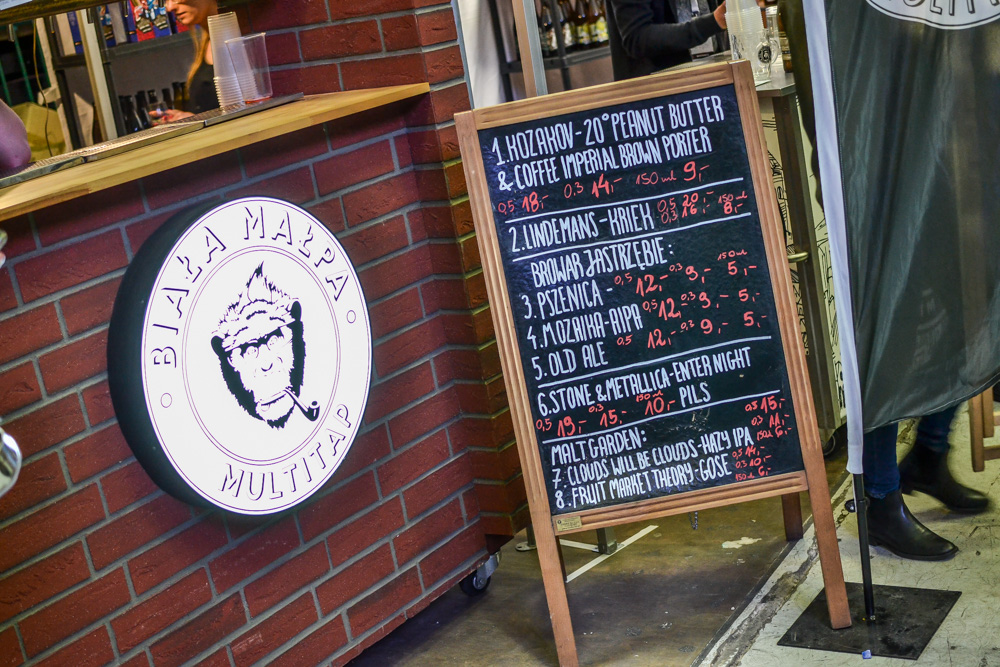 BIAŁA MAŁPA
MULTITAP
1. KOZAKOV - 20° PEANUT BUTTER
& COFFEE IMPERIAL BROWN PORTER
0,5 18,- 0,3 14,- 150 ml 9,-
2. LINDEMANS - KRIEK 0,5 20,- 150 ml
0,3 16,- 8,-
BROWAR JASTRZĘBIE:
3. PSZENICA - 0,5 12,- 0,3 9,- 150 ml 5,-
4. MOZAIKA - AIPA 0,5 12,- 0,3 9,- 5,-
5. OLD ALE 0,5 12,- 0,3 9,- 5,-
6. STONE & METALLICA - ENTER NIGHT
0,5 19,- 0,3 15,- 150 ml 10,- PILS
MALT GARDEN: 0,5 15,-
0,3 11,-
7. CLOUDS WILL BE CLOUDS - HAZY IPA 150 ml 6,-
8. FRUIT MARKET THEORY: GOSE 0,5 14,-
0,3 10,-
150 ml 6,-